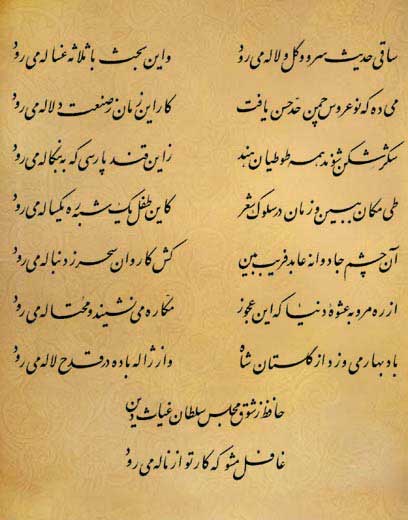 ساقی حدیث سرو و گل و لاله می رود واین بحث با ثلاثه غساله می رود
می ده که نوعروس چمن حد حسن یافت کار این زمان ز صنعت دلاله می رود
شکرشکن شوند همه طوطیان هند زاین قند پارسی که به بنگاله می رود
طی مکان ببین و زمان در سلوک شعر کاین طفل یک شبه ره یکساله می رود
آن چشم جادوانه عابدفریب بین کش کاروان سحر ز دنباله می رود
از ره مرو به عشوه دنیا که این عجوز مکاره می نشیند و محتاله می رود
باد بهار می وزد از گلستان شاه واز ژاله باده در قدح لاله می رود
حافظ ز شوق مجلس سلطان غیاث دین
غافل مشو که کار تو از ناله می رود